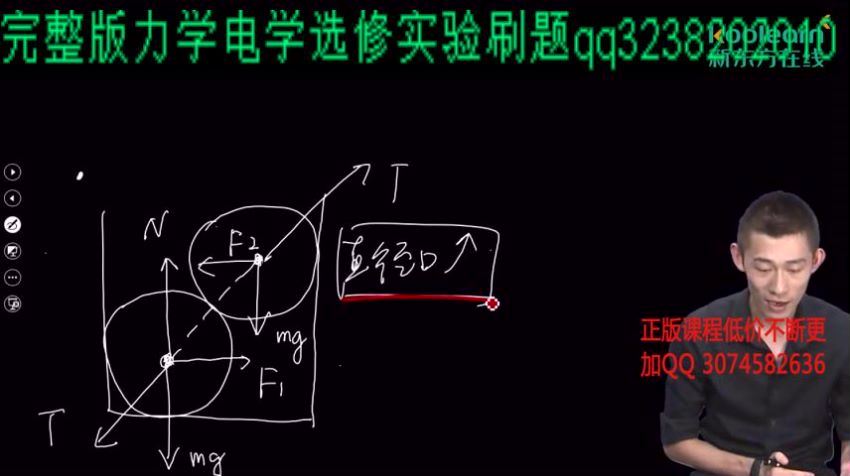 完整版力学电学选修实验刷题qq3238
Koolearn
新东方在线
T
N
F2
直径D
mg
F1
T
mg
正版课程低价不断更
加QQ 3074582636